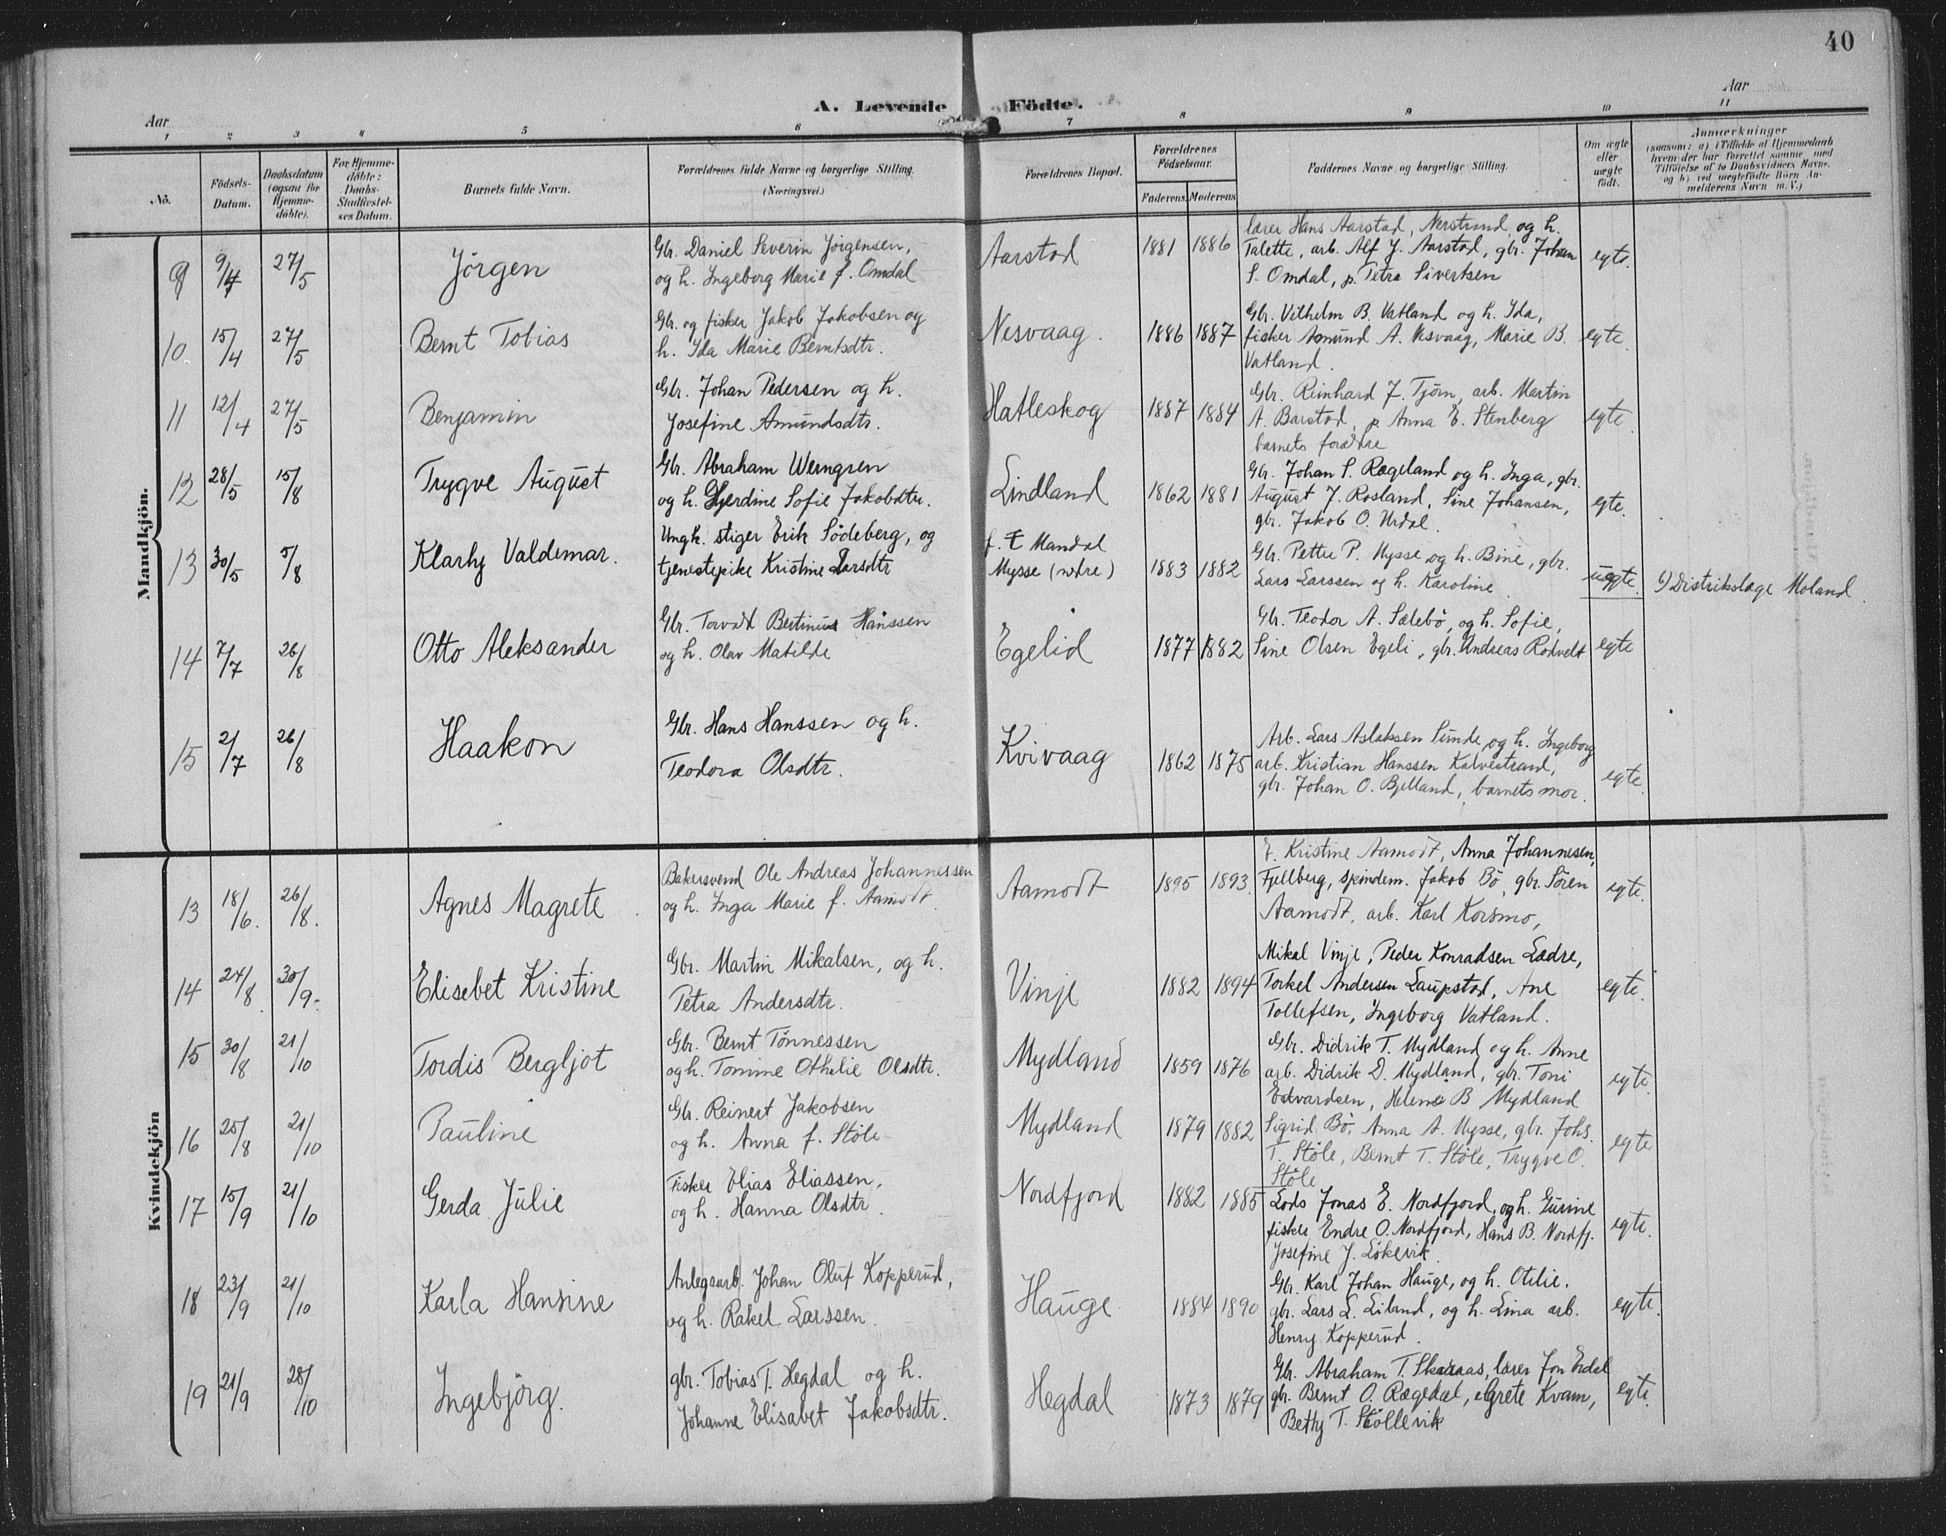 40
A. Levende Födte.
Aar
Aar
1 2 3 4 5 6 7 8 9 10 11
No.
Födsels-Datum.
Daabsdatum (ogsaa for Hjemmedöbte).
For Hjemmedöbte: Daabs-Stadfæstelses Datum.
Barnets fulde Navn.
Forældrenes fulde Navne og borgerlige Stilling. (Næringsvei.)
Forældrenes Bopæl.
Forældrenes Födselsaar.
Faderens. Moderens.
Faddernes Navne og borgerlige Stilling.
Om ægte eller uægte födt.
Anmærkninger
(saasom: a) i Tilfælde af Hjemmedaab
hvem der har forrettet samme med
Tilföielse af to Daabsvidners Navne.
og b) ved uægtefödte Börn An-
melderens Navn m. V.)
Mandkjön.
9 9/4 27/5 Jörgen Gbr. Daniel Severin Jörgensen, og h. Ingeborg Marie f. Omdal Aarstad 1881 1886 lærer Hans Aarstad, Nerstrand, og h. Talette, arb. Alf J. Aarstad, gbr. Johan S. Omdal, p. Petra Sivertsen egte.
10 15/4 27/5 Bernt Tobias Gbr. og fisker Jakob Jakobsen og h. Ida Marie Berntsdtr. Nesvaag. 1886 1887 Gbr. Vilhelm B. Vatland og h. Ida, fisker Amund A. Nesvaag, Marie B. Vatland. egte.
11 12/4 27/5 Benjamin Gbr. Johan Pedersen og h. Josefine Amundsdtr. Hatleskog 1887 1884 Gbr. Reinhard J. Tjörn, arb. Martin A. Barstad, p. Anna E. Stenberg barnets forældre egte.
12 28/5 15/8 Trygve August Gbr. Abraham Werngren og h. Gjerdine Sofie Jakobdtr. Lindland 1862 1881 Gbr. Johan S. Rægeland og h. Inga, gbr. August J. Rosland, Sine Johansen, gbr. Jakob O. Urdal. egte.
13 30/5 5/8 Klarhy Valdemar. Ungk. stiger Erik Södeberg, og tjenestepike Kristine Larsdtr f. t Mandal Mysse (nedre) 1883 1882 Gbr. Petter P. Mysse og h. Bine, gbr. Lars Larssen og h. Karoline. uegte. b) Distrikslæge Moland.
14 7/7 26/8 Otto Aleksander Gbr. Torvald Bertinius Hanssen og h. Olav Matilde Egelid 1877 1882 Gbr. Teodor A. Sælebö, og h. Sofie, Sine Olsen Egeli, gbr. Andreas Rödvelt egte
15 2/7 26/8 Haakon Gbr. Hans Hanssen og h. Teodora Olsdtr. Kvivaag 1862 1875 Arb. Lars Aslaksen Sunde, og h. Ingeborg arb. Kristian Hanssen Kalvestrand, gbr. Johan O. Bjelland, barnets mor. egte.
Kvindekjön
13 18/6. 26/8. Agnes Magrete Bakersvend Ole Andreas Johannessen og h. Inga Marie f. Aamodt. Aamodt 1895 1893. E. Kristine Aamodt, Anna Johannesen, Fjellberg, spindem. Jakob Bö, gbr. Sören Aamodt, arb. Karl Korsmo, egte.
14 24/8. 30/9. Elisebet Kristine Gbr. Martin Mikalsen, og h. Petra Andersdtr. Vinje 1882 1894 Mikal Vinje, Peder Konradsen Lædre, Torkel Andersen Laupstad, Ane Tollefsen, Ingeborg Vatland. egte.
15 30/8 21/10 Tordis Bergljot Gbr. Bernt Tönnessen og h. Tomine Othelie Olsdtr. Mydland 1859 1876 Gbr. Didrik T. Mydland og h. Anne arb. Didrik D. Mydland, gbr. Toni Edvardsen, Helene B Mydland egte.
16 25/8 21/10 Pauline Gbr. Reinert Jakobsen og h. Anna f. Stöle Mydland 1879 1882 Sigrid Bö, Anna A. Mysse, gbr. Johs. T. Stöle, Bernt T. Stöle, Trygve O. Stöle egte
17 15/9 21/10 Gerda Julie Fisker Elias Eliassen, og h. Hanna Olsdtr. Nordfjord 1882 1885 Lods Jonas E. Nordfjord, og h. Gurine fisker Endre O. Nordfjord, Hans B. Nordfj. Josefine J. Lökevik egte.
18 23/9 21/10 Karla Hansine Anlegsarb. Johan Oluf Kopperud, og h. Rakel Larssen. Hauge 1884 1890 Gbr. Karl Johan Hauge, og h. Otilie, gbr. Lars L. Eiland, og h. Lina arb. Henry Kopperud. egte.
19 21/9 28/10 Ingebjörg. gbr. Tobias T. Hegdal og h. Johanne Elisabet Jakobsdtr. Hegdal 1873 1879 Gbr. Abraham T. Skaraas, lærer Jon Erdal gbr. Bernt O. Rægedal, e. Grete Kvam, Bethy T. Stöllevik egte.